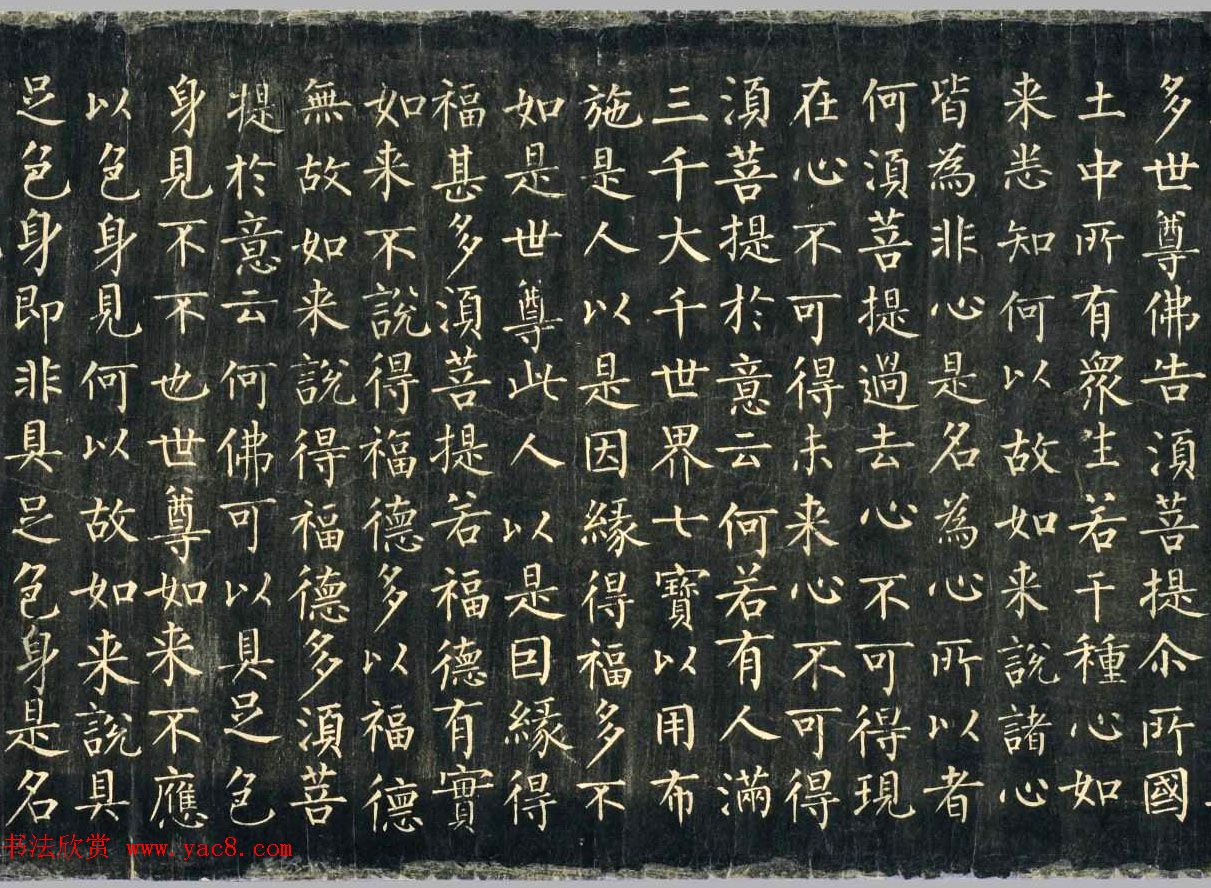 多世尊佛告須菩提尒所國
土中所有衆生若干種心如
来悉知何以故如来說諸心
皆為非心是名為心所以者
何須菩提過去心不可得現
在心不可得未来心不可得
須菩提於意云何若有人滿
三千大千世界七寶以用布
施是人以是因緣得福多不
如是世尊此人以是囙緣得
福甚多須菩提若福德有實
如来不說得福德多以福德
無故如来說得福德多須菩
提於意云何佛可以具足色
身見不不也世尊如来不應
以色身見何以故如来說具
足色身即非具足色身是名
书法欣赏 www.yac8.com